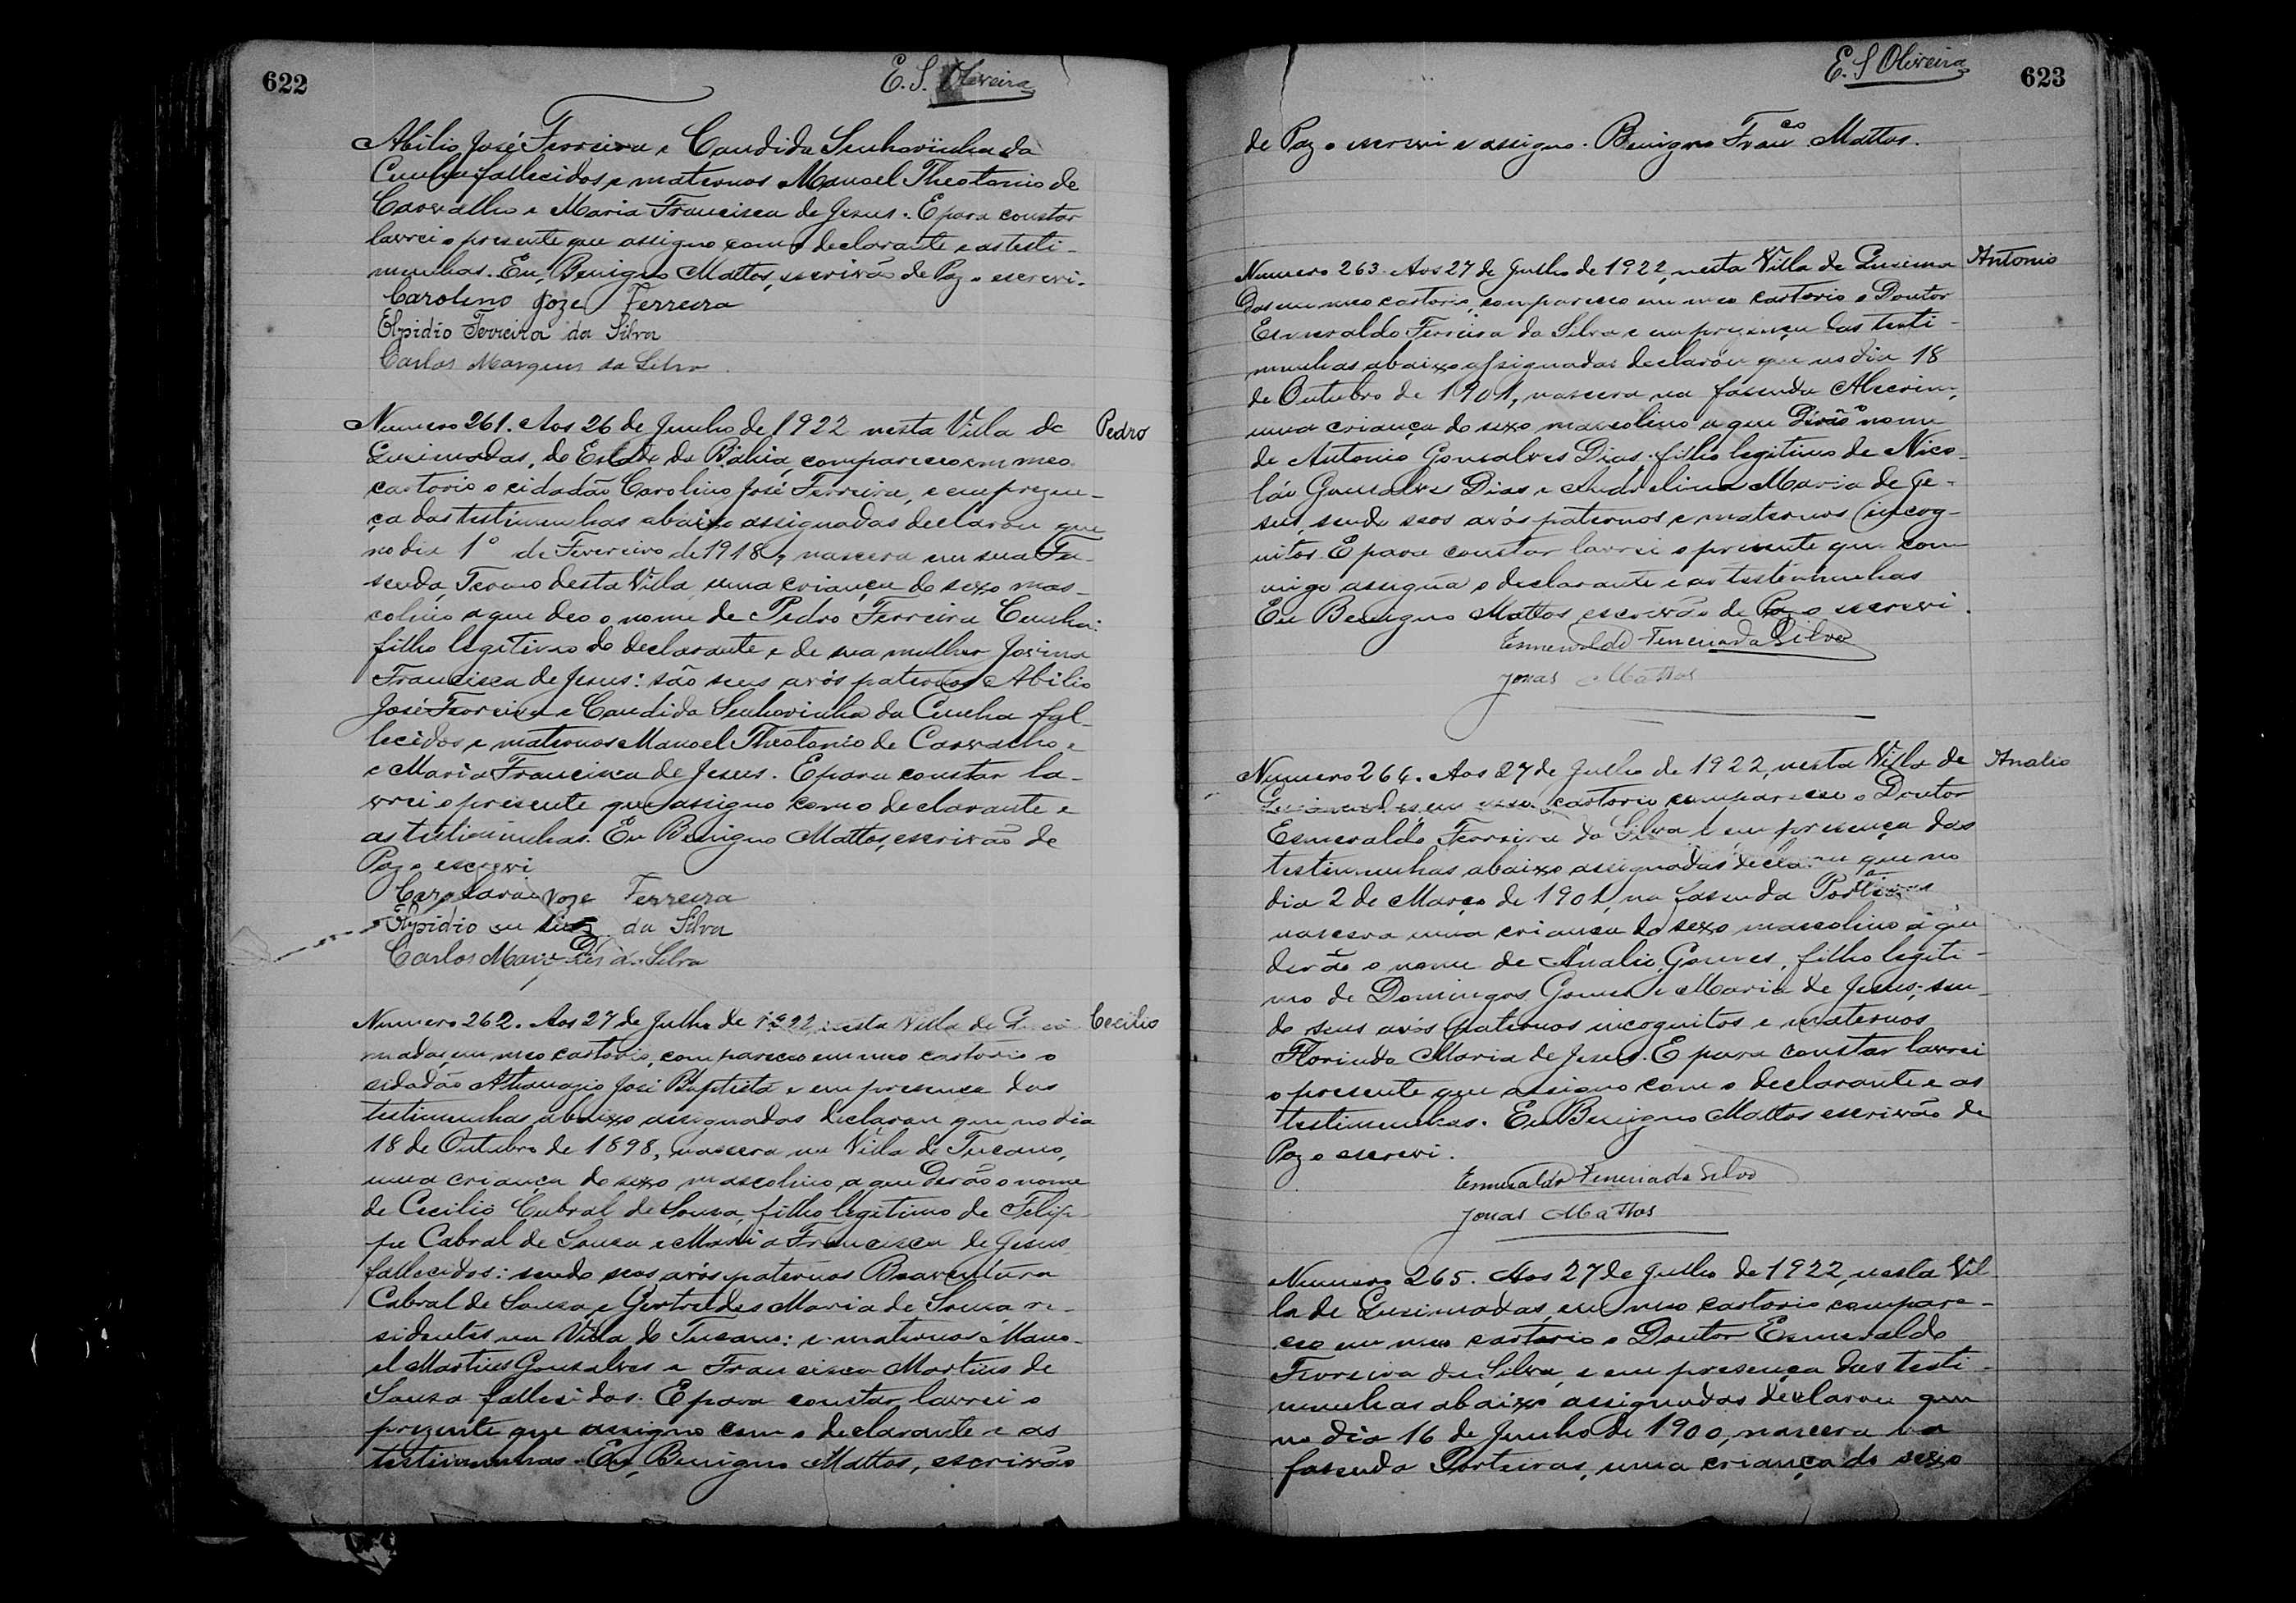 622
E. S. Oliveira
Abilio José Ferreira e Candida Senhorinha da
Cunha fallecidos e maternos Manoel Theotonio de
Carvalho e Maria Francisca de Jesus. E para constar
lavrei o presente que assigno com o declarante e as testi-
munhas. Eu, Benigno Mattos, escrivão de Paz o escrevi.
Carolino Joze Ferreira
Elpidio Ferreira da Silva
Carlos Marques da Silva.
Numero 261. Aos 26 de Junho de 1922 nesta Villa de
Pedro
Queimadas, do Estado da Bahia, compareceo em meo
cartorio o cidadão Carolino José Ferreira, e em prezen-
ça das testimunhas abaixo assignadas declarou que
no dia 1º de Fevereiro de 1918, nascera em sua Fa-
senda, Termo desta Villa, uma criança do sexo mas-
colino a que deo o nome de Pedro Ferreira Cunha:
filho legitimo do declarante e de sua mulher Jovina
Francisca de Jesus: são seus avós paternos Abilio
José Ferreira e Candida Senhorinha da Cunha fal-
lecidos e maternos Manoel Theotonio de Carvalho e
e Maria Francisca de Jesus. E para constar la-
vrei o presente que assigno com o declarante e
as testimunhas. Eu Benigno Mattos, escrivão de
Paz o escrevi
Joze Ferreira
Elpidio da Silva
Carlos da Silva
Numero 262. Aos 27 de Julho de 1922, nesta Villa de Quei-
Cecilio
madas, em meo cartorio, compareceo em meo cartorio o
cidadão Athanazio José Baptista e em presença das
testimunhas abaixo assignadas declarou que no dia
18 de Outubro de 1898, nascera na Villa de Tucano,
uma criança do sexo mascolino, a que derão o nome
de Cecilio Cabral de Souza, filho legitimo de Felip-
pe Cabral de Souza e Maria Francisca de Jesus,
fallecidos: sendo seos avós paternos Boaventura
Cabral de Souza e Gertrudes Maria de Souza re-
sidentes na Villa do Tucano: e maternos Mano-
el Martins Gonsalves e Francisca Martins de
Souza fallecidos. E para constar lavrei o
prezente que assigno com o declarante e as
testimunhas. Eu, Benigno Mattos, escrivão
E. S Oliveira
623
de Paz o escrevi e assigno. Benigno Franco Mattos.
Numero 263. Aos 27 de Julho de 1922, nesta Villa de Queima
Antonio
das em meo cartorio, compareceo em meo cartorio o Doutor
Esmeraldo Ferreira da Silva e em prezença das testi-
munhas abaixo assignadas declarou que no dia 18
de Outubro de 1901, nascera na fasenda Alecrim,
uma criança do sexo mascolino a que derão o nome
de Antonio Gonsalves Dias, filho legitimo de Nico-
láo Gonsalves Dias e Andrelina Maria de Je-
sus, sendo seos avós paternos e maternos incog-
nitos. E para constar lavrei o presente que com-
migo assigna o declarante e as testemunhas
Eu Benigno Mattos, escrivão de Paz o escrevi.
Esmeraldo Ferreira da Silva
Jonas Mattos
Numero 264. Aos 27 de Julho de 1922, nesta Villa de
Analio
Queimadas em meu cartorio compareceo o Doutor
Esmeraldo Ferreira da Silva e em presença das
testimunhas abaixo assignadas declarou que no
dia 2 de Março de 1901, na fasenda
nascera uma criança do sexo mascolino a que
derão o nome de Analio Gomes, filho legiti-
mo de Domingos Gomes e Maria de Jesus, sen-
do seus avós paternos incognitos e maternos
Florinda Maria de Jesus. E para constar lavrei
o presente que assigno com o declarante e as
testimunhas. Eu Benigno Mattos escrivão de
Paz o escrevi.
Esmeraldo Ferreira da Silva
Jonas Mattos
Numero 265. Aos 27 de Julho de 1922, nesta Vil-
la de Queimadas, em meo cartorio compare-
ceo em meo cartorio o Doutor Esmeraldo
Ferreira da Silva, e em presença das testi-
munhas abaixo assignadas declarou que
no dia 16 de Junho de 1900, nascera na
fasenda Porteiras, uma criança do sexo